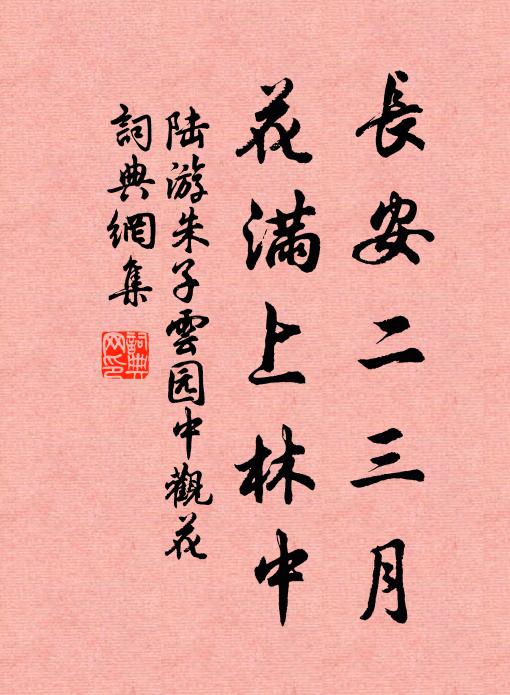 長安二三月
花滿上林中
陆游朱子雲园中觀花
詞典網集
詞典網印